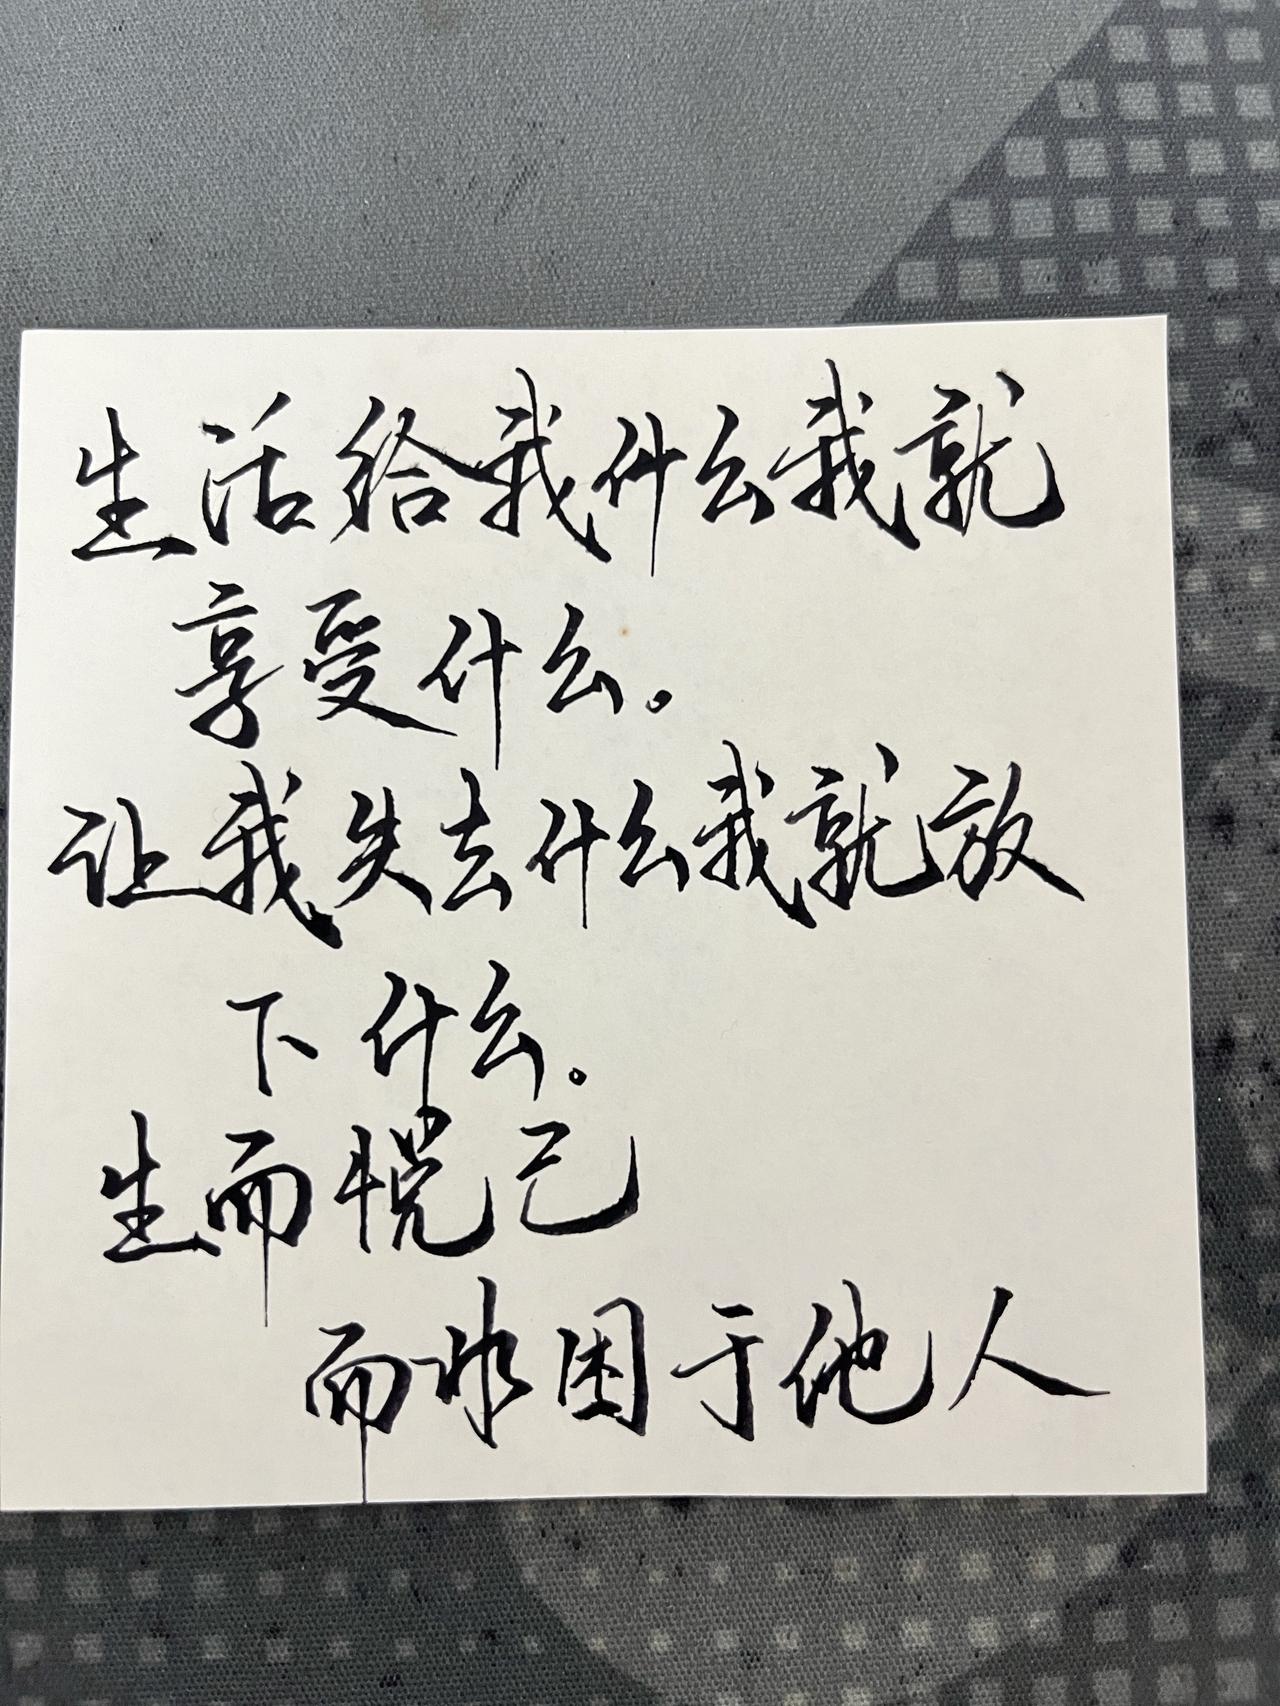 生活给我什么我就
享受什么。
让我失去什么我就放
下什么。
生而悦己
而非困于他人